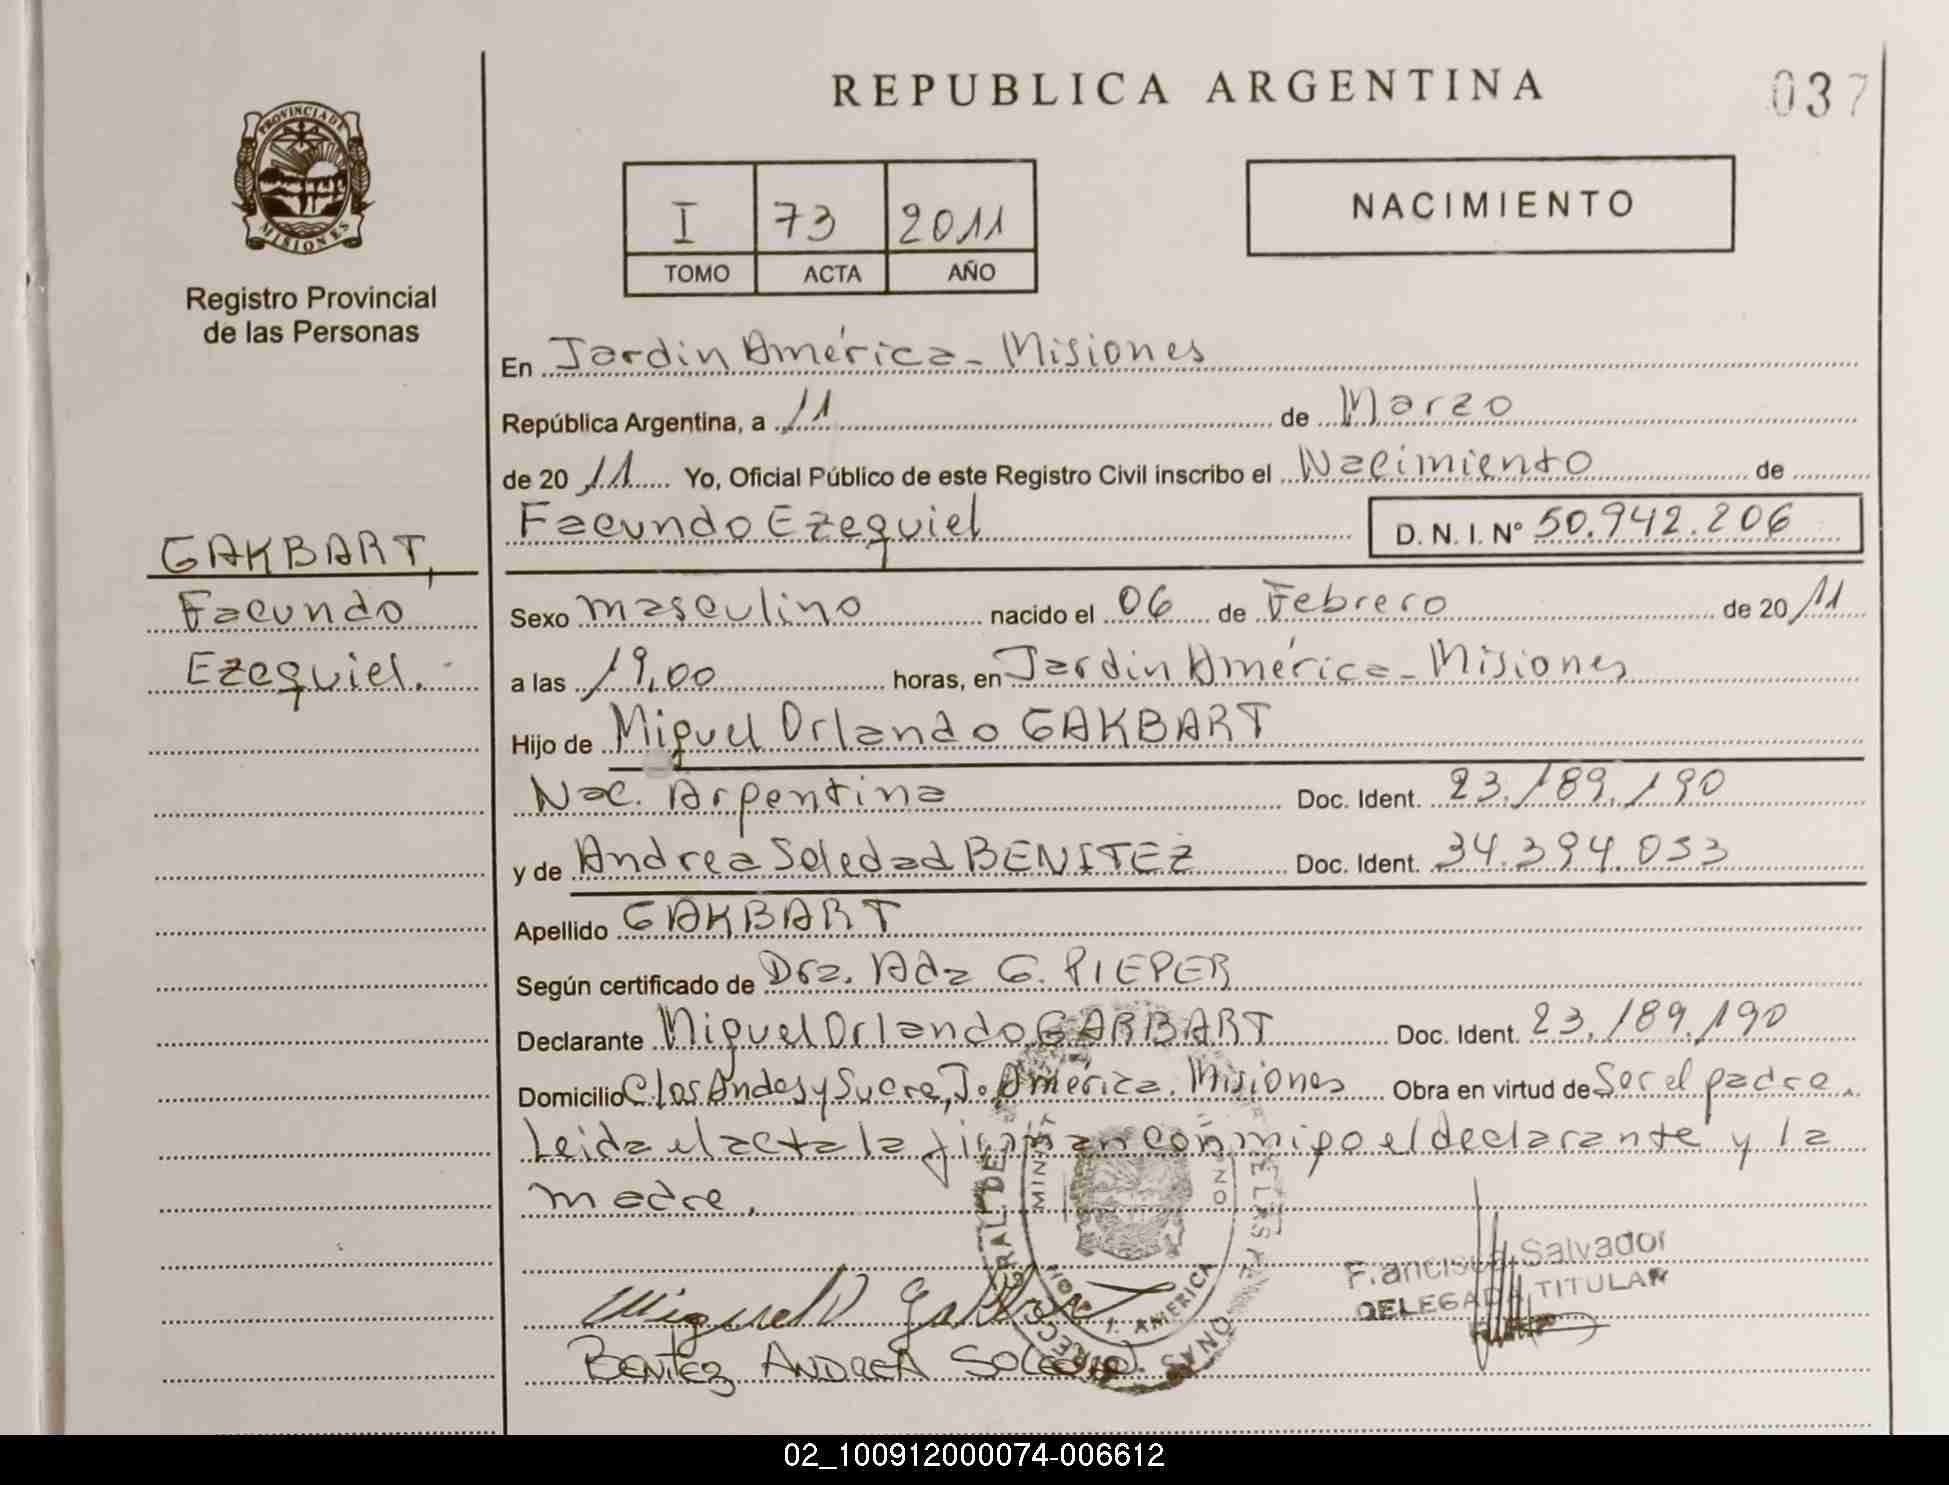 REPUBLICA ARGENTINA
037
PROVINCIA DE
MISIONES
Registro Provincial
de las Personas
I 73 2011
TOMO ACTA AÑO
NACIMIENTO
En Jardin América - Misiones
República Argentina, a 11 de Marzo
de 20 11 Yo, Oficial Público de este Registro Civil inscribo el Nacimiento de
Facundo Ezequiel D. N. I. Nº 50.942.206
GAKBART,
Facundo
Ezequiel.
Sexo masculino nacido el 06 de Febrero de 20 11
a las 19,00 horas, en Jardin América - Misiones
Hijo de Miguel Orlando GAKBART
Nac. Argentina Doc. Ident. 23.189.190
y de Andrea Soledad BENITEZ Doc. Ident. 34.394.053
Apellido GAKBART
Según certificado de Dra. Ada G. PIEPER
Declarante Miguel Orlando GAKBART Doc. Ident. 23.189.190
Domicilio C/Los Andes y Sucre, J. América. Misiones Obra en virtud de Ser el padre.
Leida el acta la firman conmigo el declarante y la
madre.
Miguel O Gakbart
BENITEZ ANDREA SOLEDAD
J. AMERICA
Salvador
DELEGADA TITULAR
02_100912000074-006612